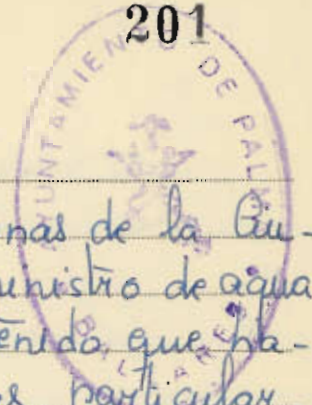 201
AYUNTAMIENTO DE PALMA
BALEARES
nas de la Ciu-
ministro de agua
tenido que ha-
es particular